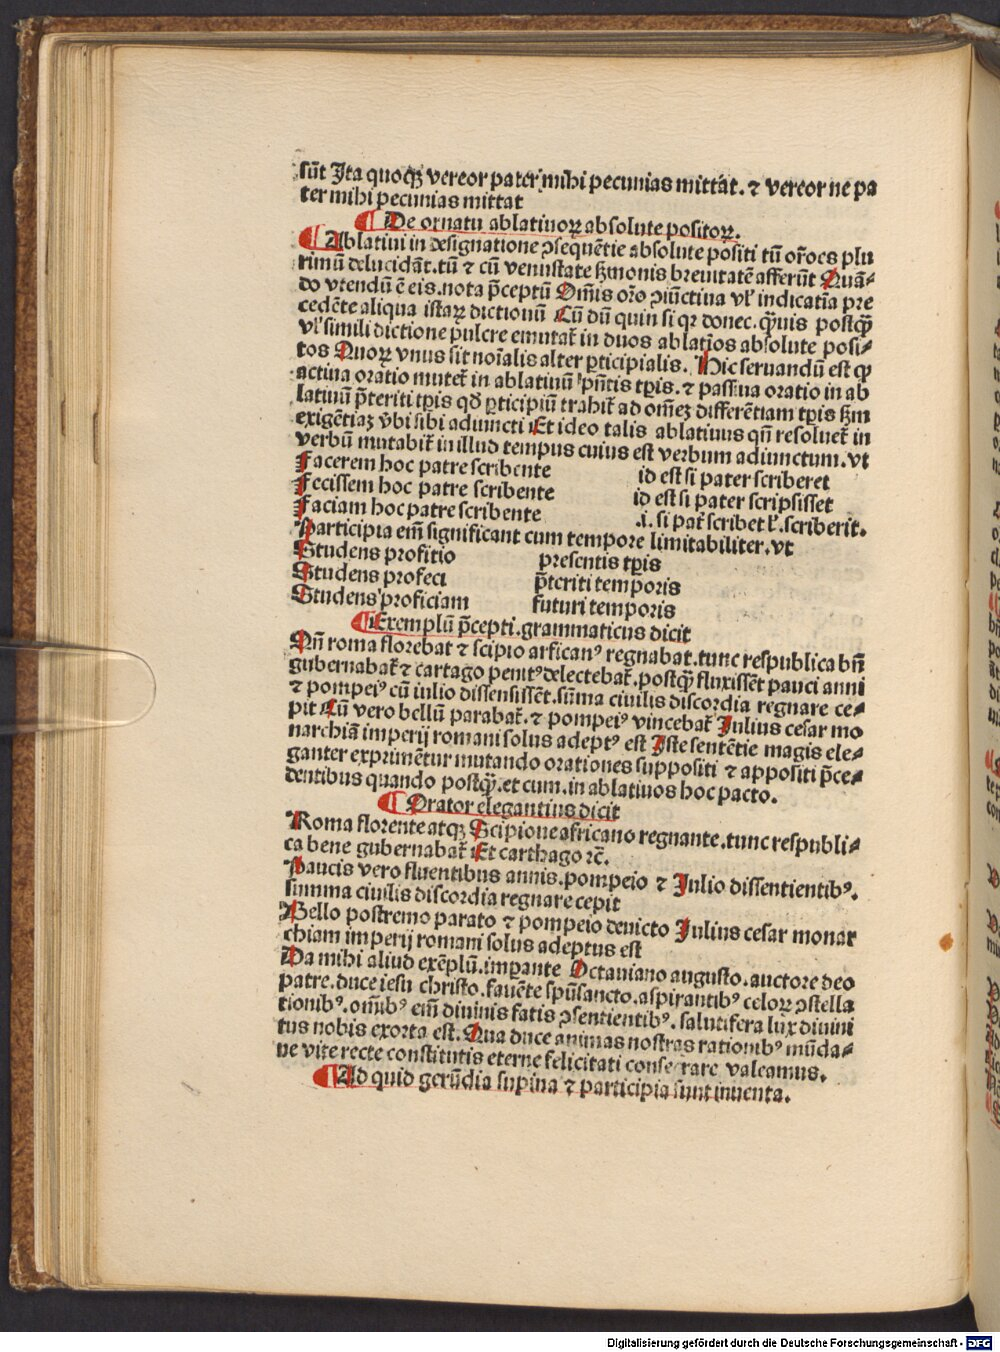 sūt Ita quoqꝫ vereor pater mihi pecunias mittat. ⁊ vereor ne pa
ter mihi pecunias mittat
¶ De ornatu ablatiuoꝝ absolute positoꝝ.
¶ Ablatiui in designatione ꝯsequētie absolute positi tū or̄oes plu
rimū delucidāt. tū ⁊ cū venustate ẜmonis breuitatē afferūt Quā-
do vtendū ē eis. nota p̄ceptū Om̄is or̄o ꝯiūctiua vl̕ indicatīa pre
cedēte aliqua istaꝝ dictionū Cū dū quin si qꝛ donec. q̄uis postq̄ꝫ
vl̕ simili dictione pulcre emutat̕ in duos ablatīos absolute posi-
tos Quoꝝ vnus sit noīalis alter ꝑticipialis. Hic seruandū est ꝙ
actiua oratio mutet̕ in ablatiuū p̄ntis tꝑis. ⁊ passiua oratio in ab
latiuū p̄teriti tꝑis qđ ꝑticipiū trahit̕ ad om̄eꝫ differētiam tꝑis ẜm
exigētiaꝫ v̄bi sibi adiuncti Et ideo talis ablatiuus qn̄ resoluet̕ in
verbū mutabit̕ in illud tempus cuius est verbum adiunctum. vt
Facerem hoc patre scribente id est si pater scriberet
Fecissem hoc patre scribente id est si pater scripsisset
Faciam hoc patre scribente .i. si pat̕ scribet l̕. scriberit.
Participia em̄ significant cum tempore limitabiliter. vt
Studens profitio presentis tꝑis
Studens profeci p̄teriti temporis
Studens proficiam futuri temporis
¶ Exemplū p̄cepti. grammaticus dicit
Qn̄ roma florebat ⁊ scipio arfican⁹ regnabat. tunc respublica bn̄
gubernabat̕ ⁊ cartago penit⁹ delectebat̕. postq̄ꝫ fluxissēt pauci anni
⁊ pompei⁹ cū iulio dissensissēt. sūma ciuilis discordia regnare ce-
pit Cū vero bellū parabat̕. ⁊ pompei⁹ vincebat̕ Julius cesar mo
narchiā imperij romani solus adept⁹ est Iste sentētie magis ele-
ganter exprimētur mutando orationes suppositi ⁊ appositi p̄ce-
dentibus quando postq̄ꝫ. et cum. in ablatiuos hoc pacto.
¶ Orator elegantius dicit
Roma florente atqꝫ Scipione africano regnante. tunc respubli-
ca bene gubernabat̕ Et carthago ⁊c̄.
Paucis vero fluentibus annis. pompeio ⁊ Julio dissentientib⁹.
summa ciuilis discordia regnare cepit
Bello postremo parato ⁊ pompeio deuicto Julius cesar monar
chiam imperij romani solus adeptus est
Da mihi aliud exēplū. imꝑante Octauiano augusto. auctore deo
patre. duce iesu christo. fauēte spūsancto. aspirantib⁹ celoꝝ ꝯstella
tionib⁹. om̄ib⁹ em̄ diuinis fatis ꝯsentientib⁹. salutifera lux diuini
tus nobis exorta est. Qua duce animas nostras rationib⁹ mūda-
ne vite recte constitutis eterne felicitati consecrare valeamus.
¶ Ad quid gerūdia supina ⁊ participia sunt inuenta.
Digitalisierung gefördert durch die Deutsche Forschungsgemeinschaft - DFG